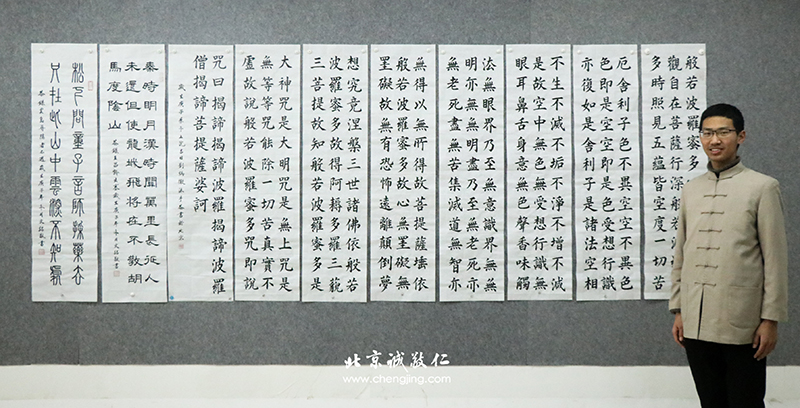 般若波羅蜜多
觀自在菩薩行深般若波
多時照見五蘊皆空度一切苦
厄舍利子色不異空空不異色
色即是空空即是色受想行識
亦復如是舍利子是諸法空相
不生不滅不垢不淨不增不減
是故空中無色無受想行識無
眼耳鼻舌身意無色聲香味觸
法無眼界乃至無意識界無無
明亦無無明盡乃至無老死亦
無老死盡無苦集滅道無智亦
無得以無所得故菩提薩埵依
般若波羅蜜多故心無罣礙無
罣礙故無有恐怖遠離顛倒夢
想究竟涅槃三世諸佛依般若
波羅蜜多故得阿耨多羅三藐
三菩提故知般若波羅蜜多是
大神咒是大明咒是無上咒是
無等等咒能除一切苦真實不
虛故說般若波羅蜜多咒即說
咒曰揭諦揭諦波羅揭諦波羅
僧揭諦菩提薩婆訶
秦時明月漢時關萬里長征人
未還但使龍城飛將在不教胡
馬度陰山
松下問童子言師採藥去
只在此山中雲深不知處
北京诚敬仁
www.chengjing.com